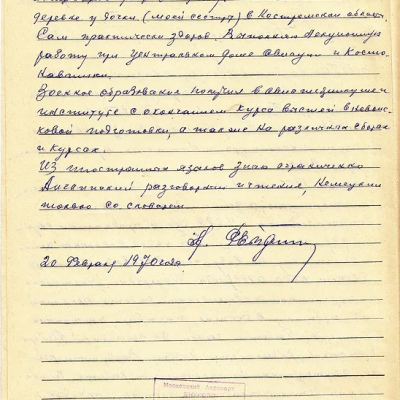 деревне у дочки (моей сестры) в Костромской области.
Сам практически здоров. Выполняю
работу при Центральном доме Авиации и Космо-
навтики.
Военное образование получил в Авиационном
институте с окончанием курса высшей вневойс-
ковой подготовки, а также на различных сборах
и курсах.
Из иностранных языков знаю ограниченно
Английский разговорный и чтения, Немецкий
только со словарем.
20 Февраля 1970 года.
Московский Аэропорт